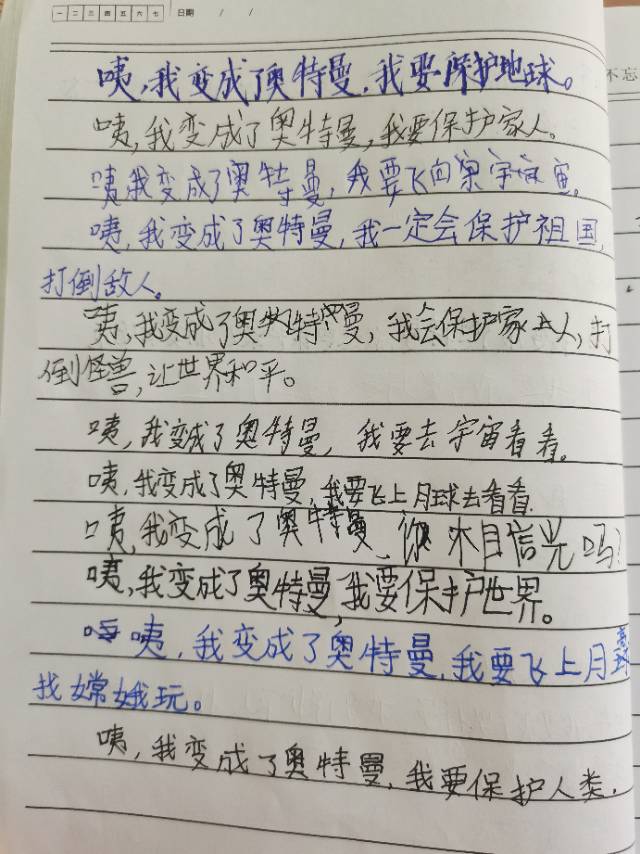 一 二 三 四 五 六 七 日期 / /
不忘
咦,我变成了奥特曼,我要保护地球。
咦,我变成了奥特曼,我要保护家人。
咦我变成了奥特曼,我要飞向宇宙,
咦,我变成了奥特曼,我一定会保护祖国,
打倒敌人。
咦,我变成了奥特曼,我会保护家人,打
倒怪兽,让世界和平。
咦,我变成了奥特曼,我要去宇宙看看。
咦,我变成了奥特曼,我要飞上月球去看看.
咦,我变成了奥特曼,你木目信光吗?
咦,我变成了奥特曼,我要保护世界。
咦,我变成了奥特曼,我要飞上月球
找嫦娥玩。
咦,我变成了奥特曼,我要保护人类.